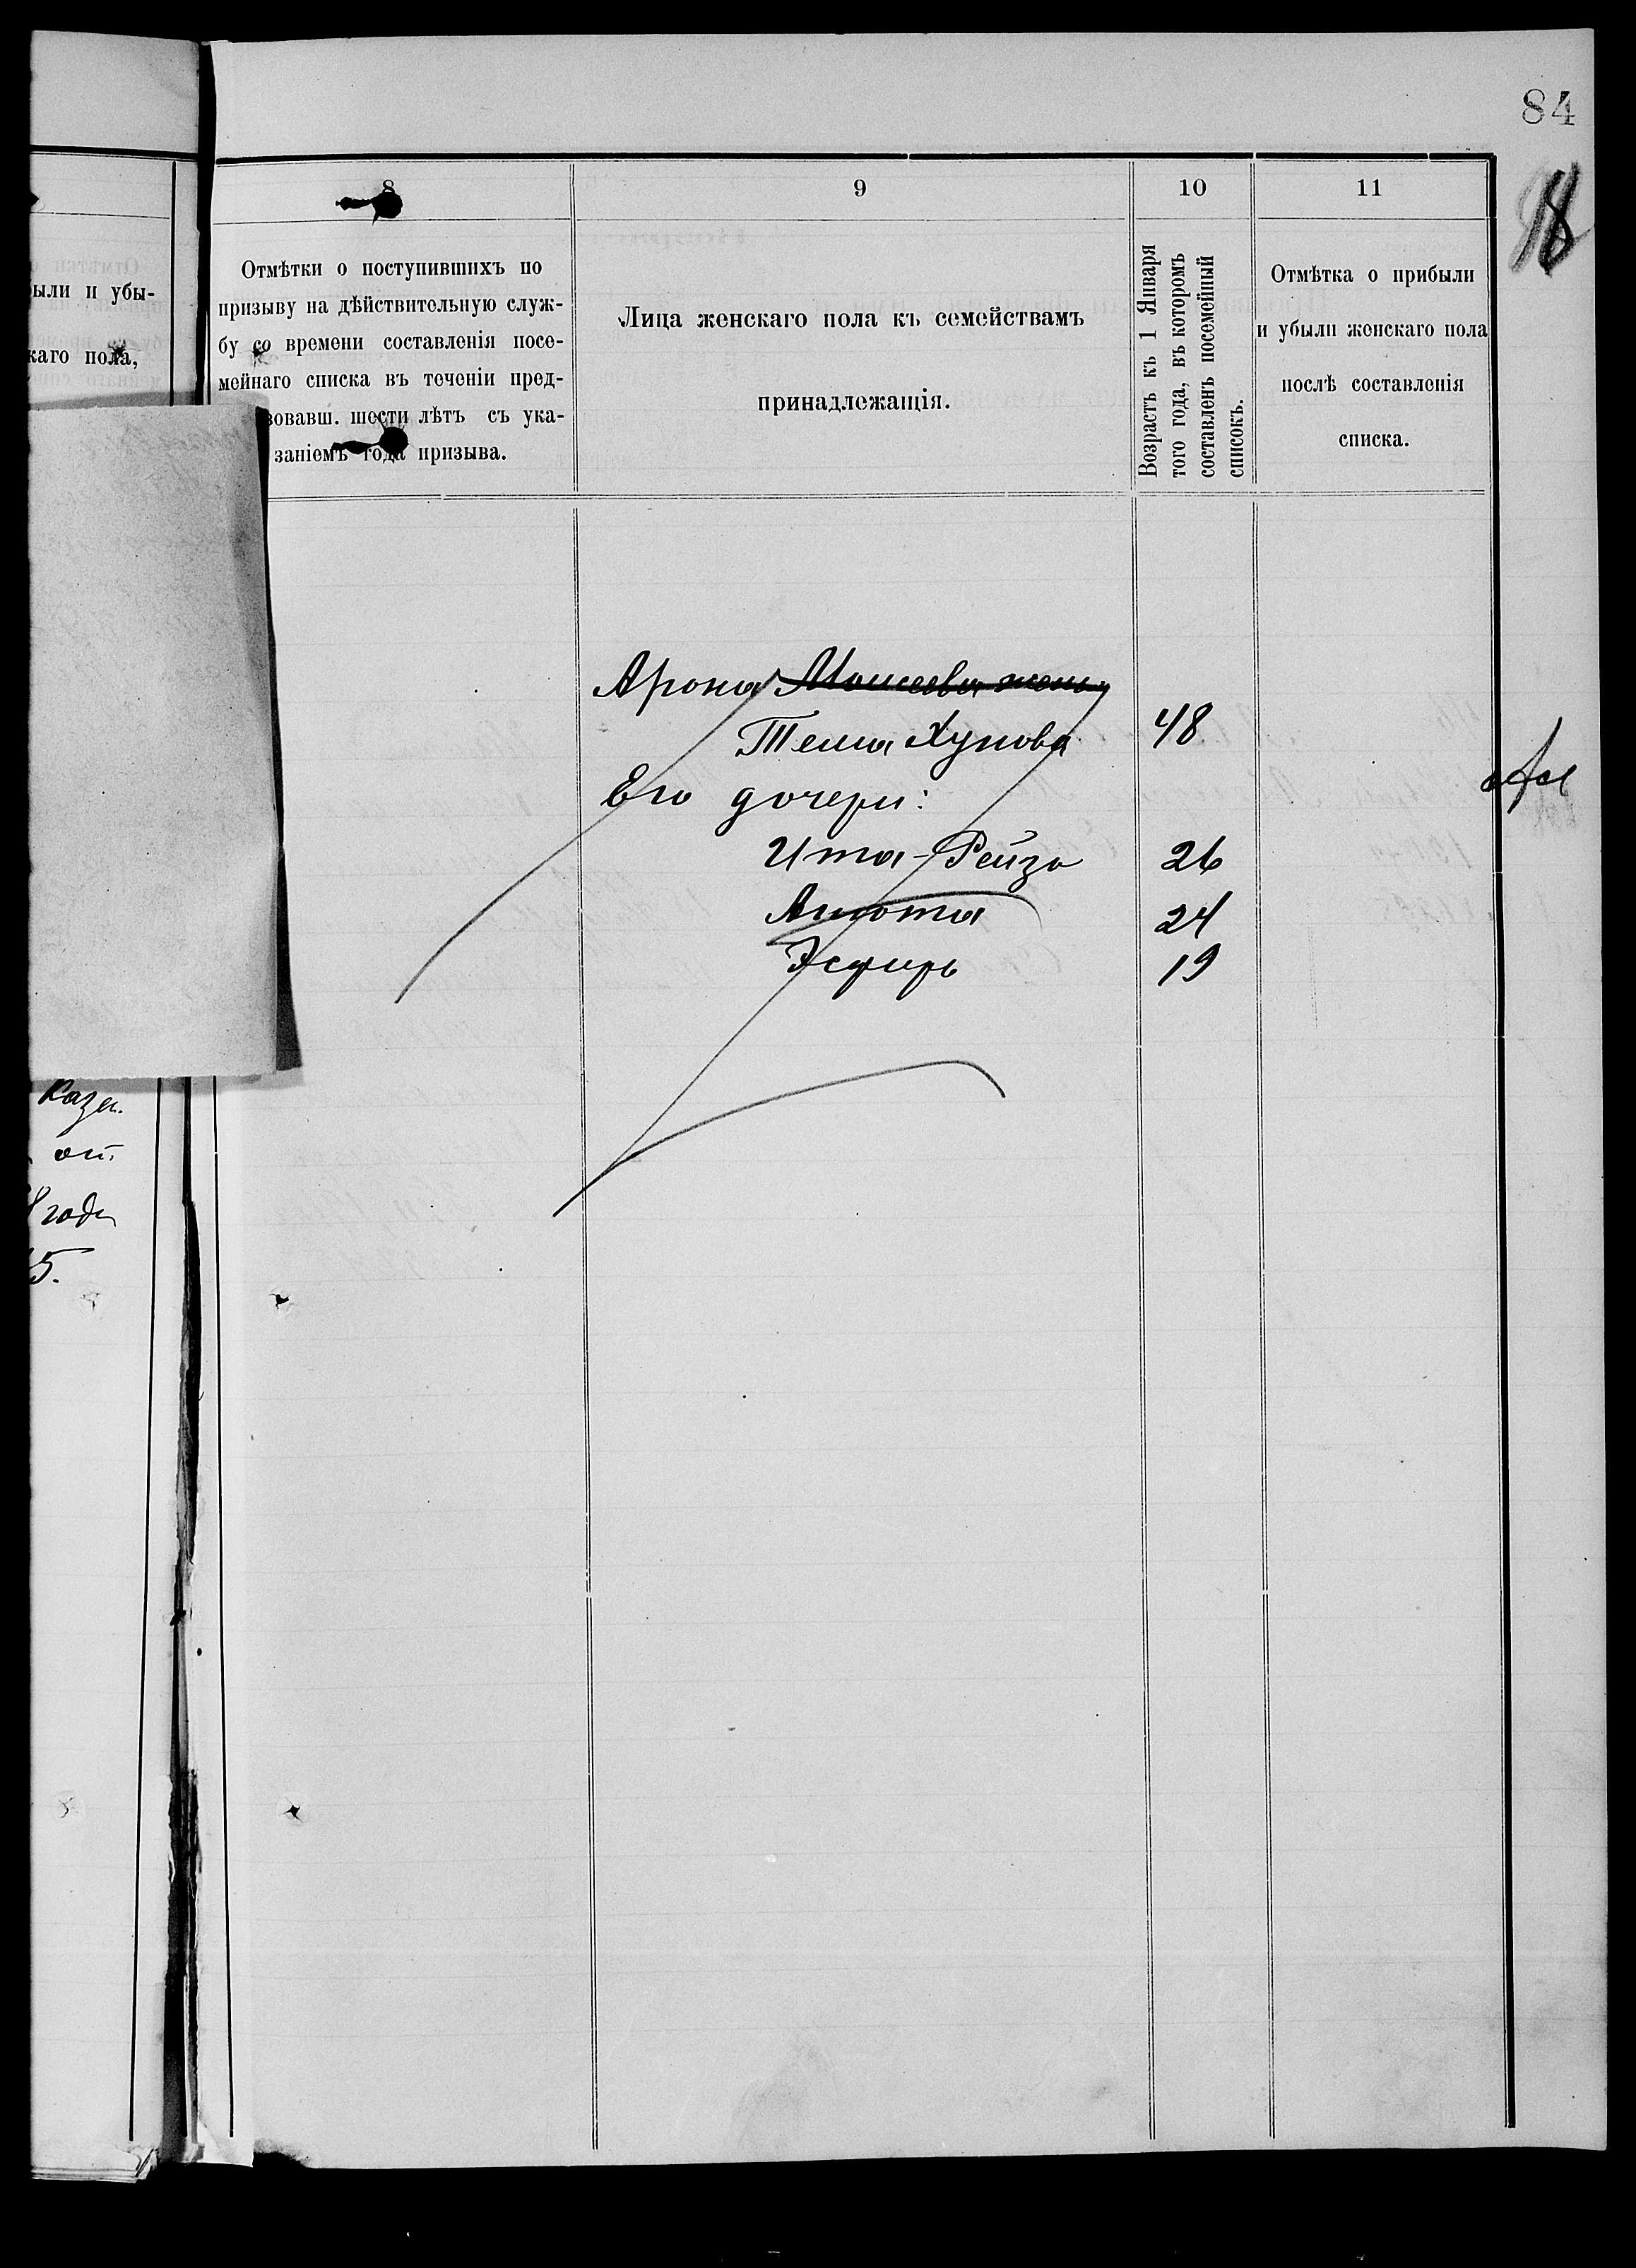 84
18
ыли и убы-
каго пола,
Каз.
от
года
5.
8
Отмѣтки о поступившихъ по
призыву на дѣйствительную служ-
бу со времени составленія посе-
мейнаго списка въ теченіи пред-
вовавш. шести лѣтъ съ ука-
заніемъ года призыва.
9
Лица женскаго пола къ семействамъ
принадлежащія.
10
Возрастъ къ 1 Января
того года, въ которомъ
составленъ посемейный
списокъ.
11
Отмѣтка о прибыли
и убыли женскаго пола
послѣ составленія
списка.
Арона Моисеева жена
Тема Хунова 48
Его дочери:
Ита-Рейза 26
Анюта 24
Эсфирь 19